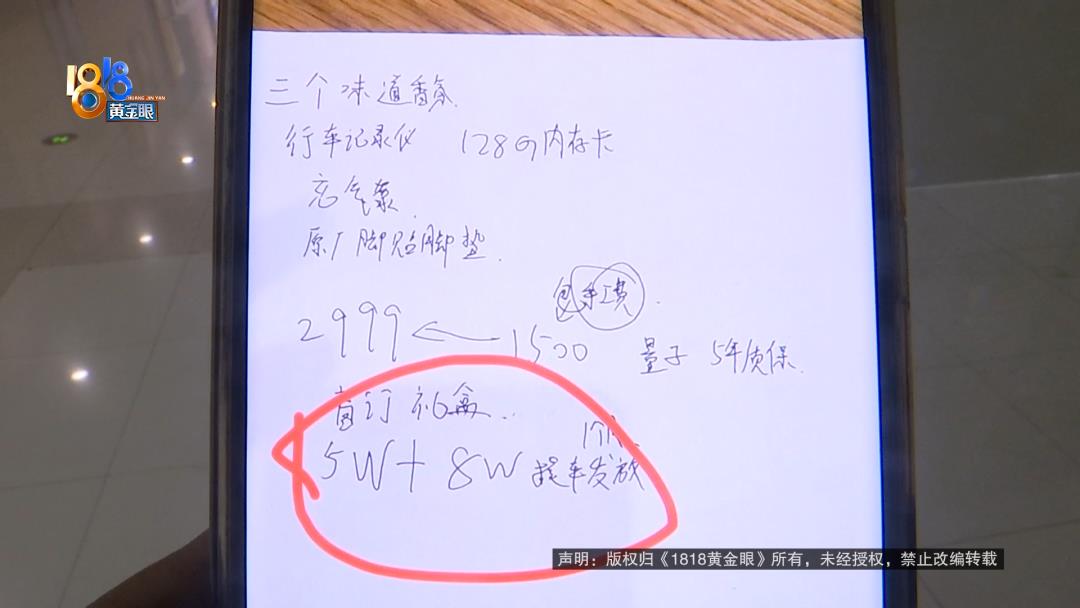 1818
HUANG JIN YAN
黄金眼
三个味道香氛.
行车记录仪 128g内存卡
充气泵.
原厂脚贴脚垫.
包手工费.
2999 ← 1500
量子 5年质保.
首订礼盒..
1个月
5W+8W 提车发放
声明：版权归《1818黄金眼》所有，未经授权，禁止改编转载